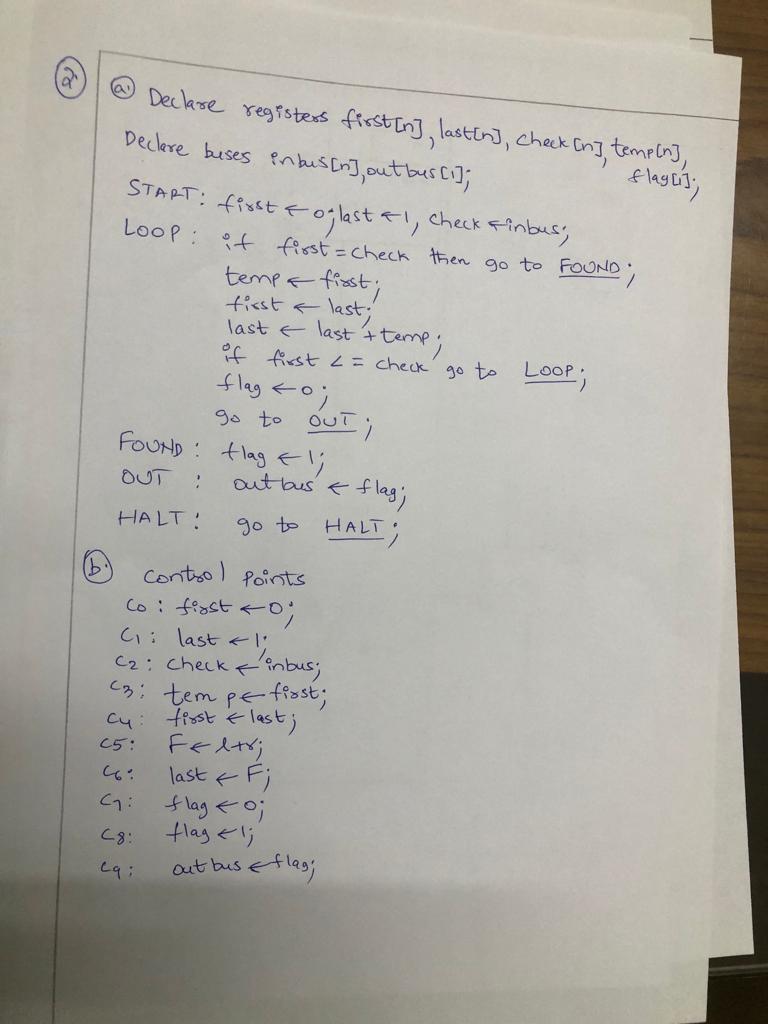 2
a. Declare registers first[n], last[n], check[n], temp[n],
flag[1];
Declare buses inbus[n], outbus[1];
START: first ← 0; last ← 1, check ← inbus;
LOOP: if first = check then go to FOUND;
temp ← first;
first ← last;
last ← last + temp;
if first <= check go to LOOP;
flag ← 0;
go to OUT;
FOUND: flag ← 1;
OUT : outbus ← flag;
HALT: go to HALT;
b. control points
C0: first ← 0;
C1: last ← 1;
C2: check ← inbus;
C3: temp ← first;
C4: first ← last;
C5: F ← l+r;
C6: last ← F;
C7: flag ← 0;
C8: flag ← 1;
C9: outbus ← flag;